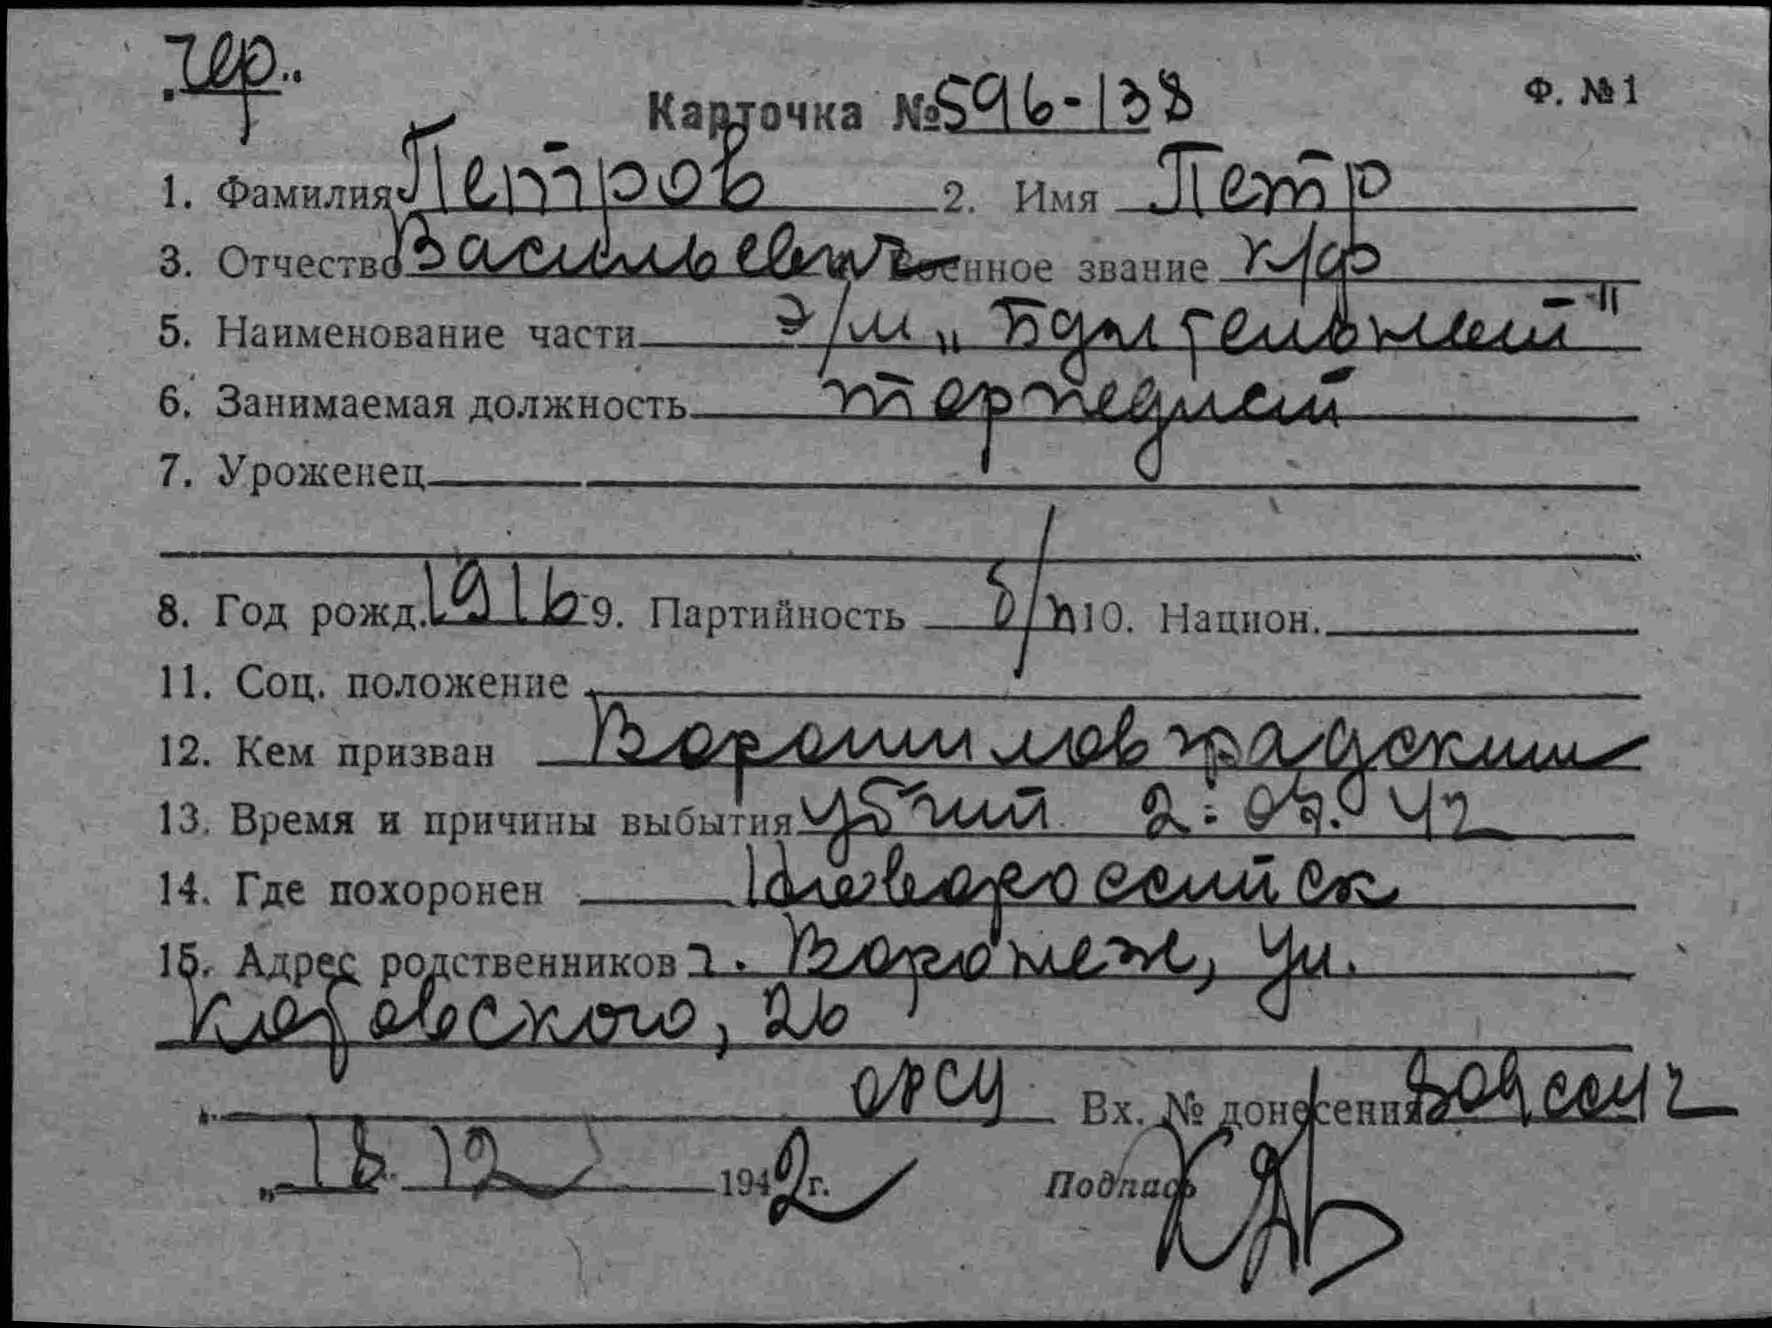 Чер.
Карточка № 596-138 Ф. № 1
1. Фамилия Петров 2. Имя Петр
3. Отчество Васильевич военное звание к/ф
5. Наименование части э/м „Бдительный"
6. Занимаемая должность торпедист
7. Уроженец
8. Год рожд. 1916 9. Партийность б/п 10. Национ.
11. Соц. положение
12. Кем призван Ворошиловградским
13. Время и причины выбытия убитый 2.07.42
14. Где похоронен Новороссийск
15. Адрес родственников г. Воронеж, ул.
Котовского, 26
Вх. № донесения
„18. 12 1942 г. Подпись